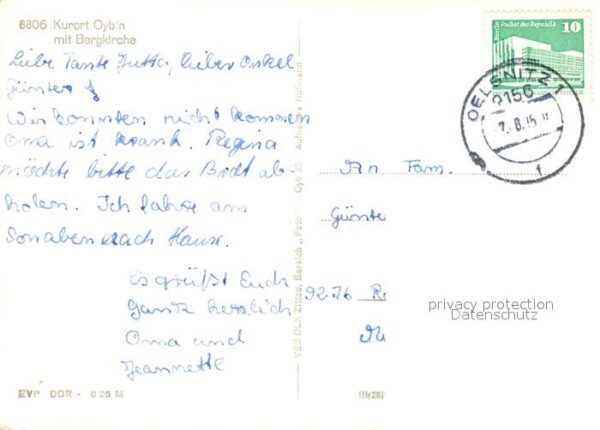 8806 Kurort Oybin
mit Bergkirche
Liebe Tante Jutta, lieber Onkel
Günter!
Wir konnten nicht kommen
Oma ist krank. Regina
möchte bitte das Brot ab-
holen. Ich fahre am
Sonabend nach Hause.
Es grüßt Euch
Ganz herzlich
Oma und
Jeannette
EVP DDR - 0 25 M
VEB DLK Zittau, Bereich „Foto“ Oyb 35 Hofmann
Berlin Palast der Republik
10
OELSNITZ 1
9156
An Fam.
Günte
9276 R
privacy protection
Datenschutz